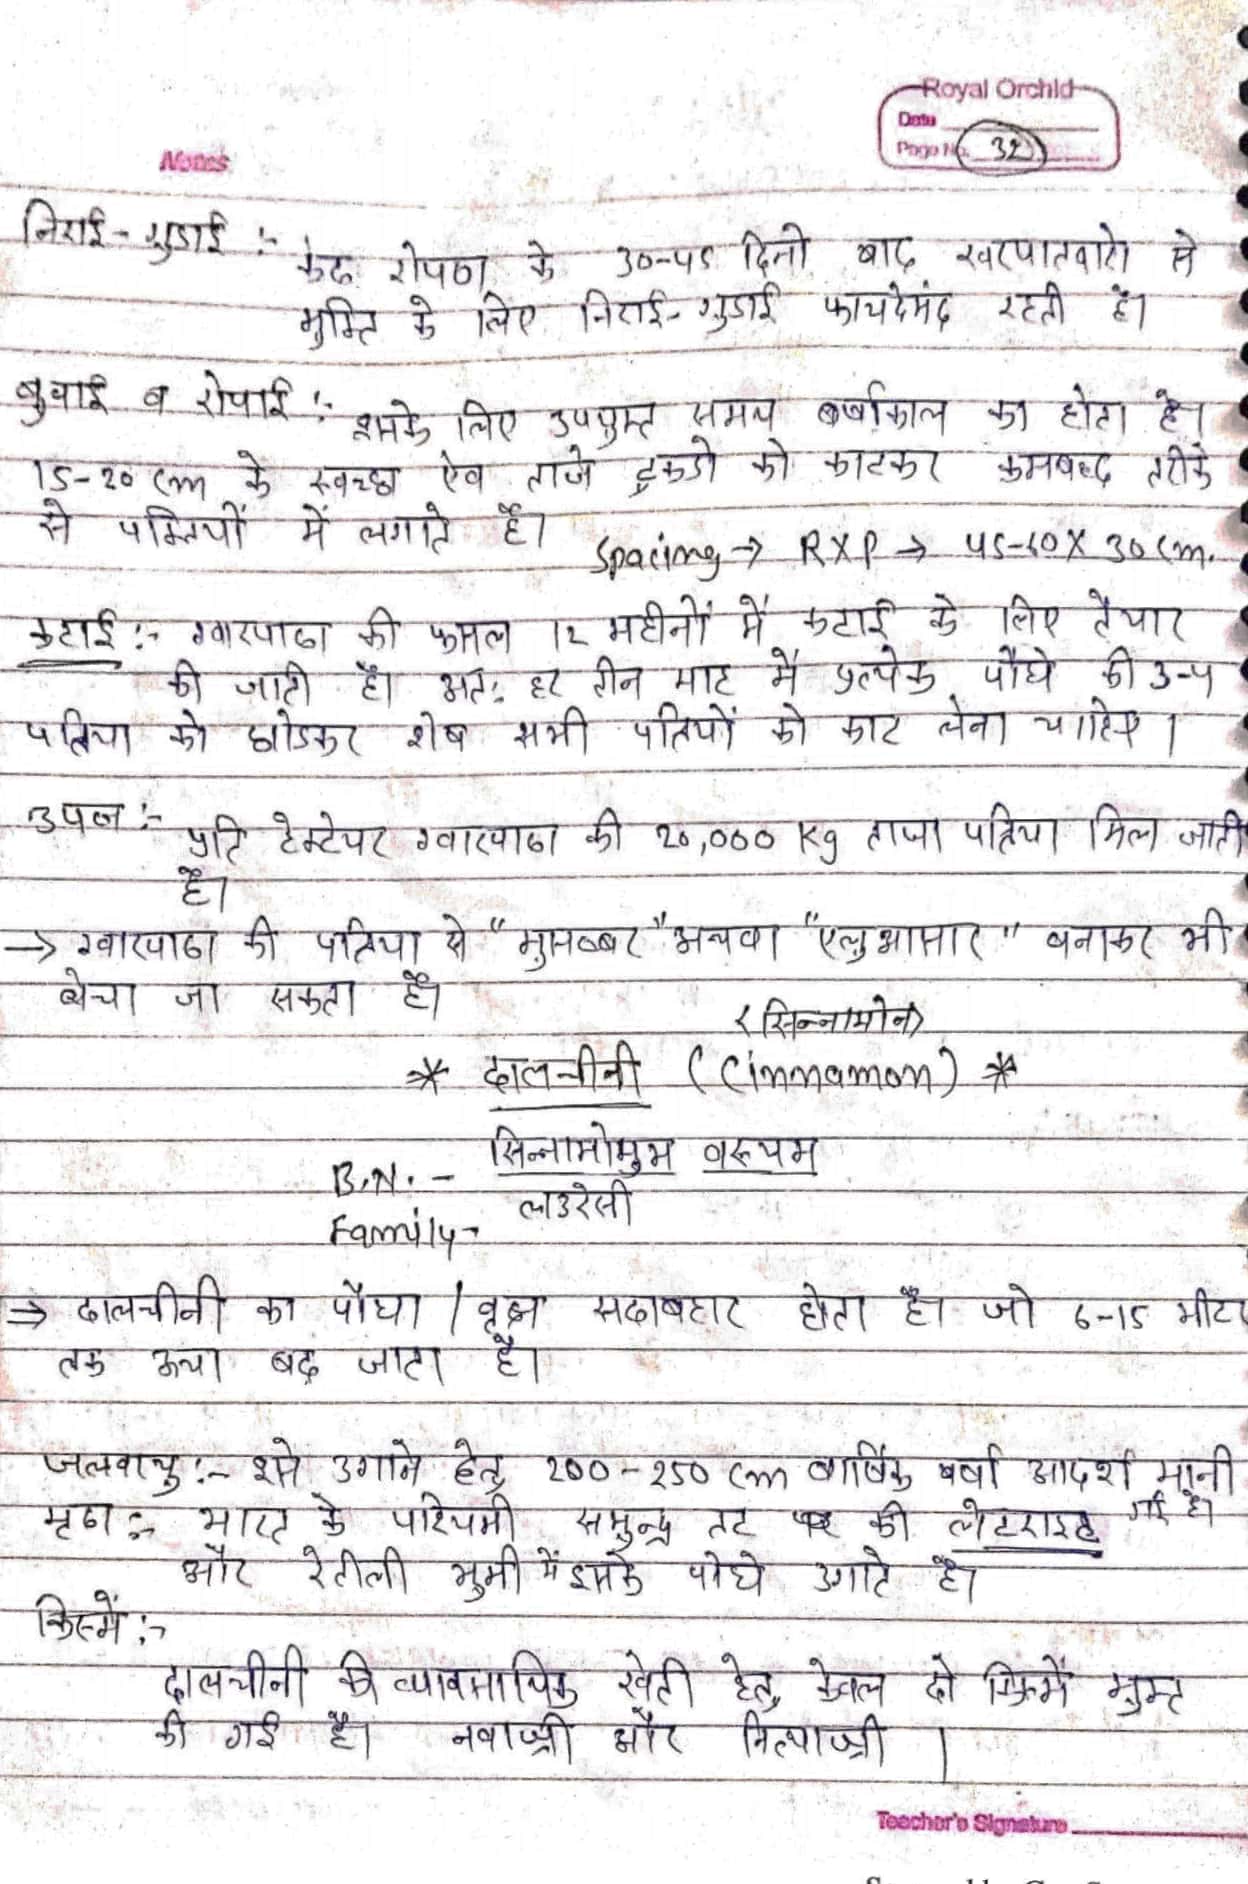 Royal Orchid
Date
Page No. 32
Notes
निराई-गुडाई :-
कंद रोपण के 30-45 दिनो बाद खरपतवारो से
मुक्ति के लिए निराई-गुडाई फायदेमंद रहती है।
बुवाई व रोपाई :- इसके लिए उपयुक्त समय बर्षाकाल का होता है।
15-20 cm के स्वच्छ ऐव ताजे टुकडो को काटकर क्रमबध्द तरीके
से पक्तियों में लगाते हैं।
Spacing → RXP → 45-60 X 30 cm.
कटाई :- ग्वारपाठा की फसल 12 महीनों में कटाई के लिए तैयार
की जाती है। अत: हर तीन माह मै प्रत्येक पौधे की 3-4
पत्तिया को छोडकर शेष सभी पतियों को काट लेना चाहिए।
उपज :-
प्रति हेक्टेयर ग्वारपाठा की 20,000 kg ताजा पत्तिया मिल जाती
है।
→ ग्वारपाठा की पत्तिया से "मुसब्बर" अथवा "एलुआसार" बनाकर भी
बेचा जा सकता है।
<सिन्नामोन>
* दालचीनी (Cinnamon) *
B.N. - सिन्नामोमुम वरूयम
Family- लाउरेसी
⇒ दालचीनी का पौधा / वृक्ष सदाबहार होता है। जो 6-15 मीटर
तक ऊचा बढ जाता है।
जलवायु :- इसे उगाने हेतु 200-250 cm वार्षिक बर्षा आदर्श मानी
गई है।
मृदा :- भारत के पश्चिमी समुन्द्र तट की लेटराइट
और रेतीली भुमी में इसके पोधे उगाते है।
किस्में :-
दालचीनी की व्यावसायिक खेती हेतु केवल दो किस्में मुक्त
की गई है। नवाश्री और नित्याश्री |
Teacher's Signature